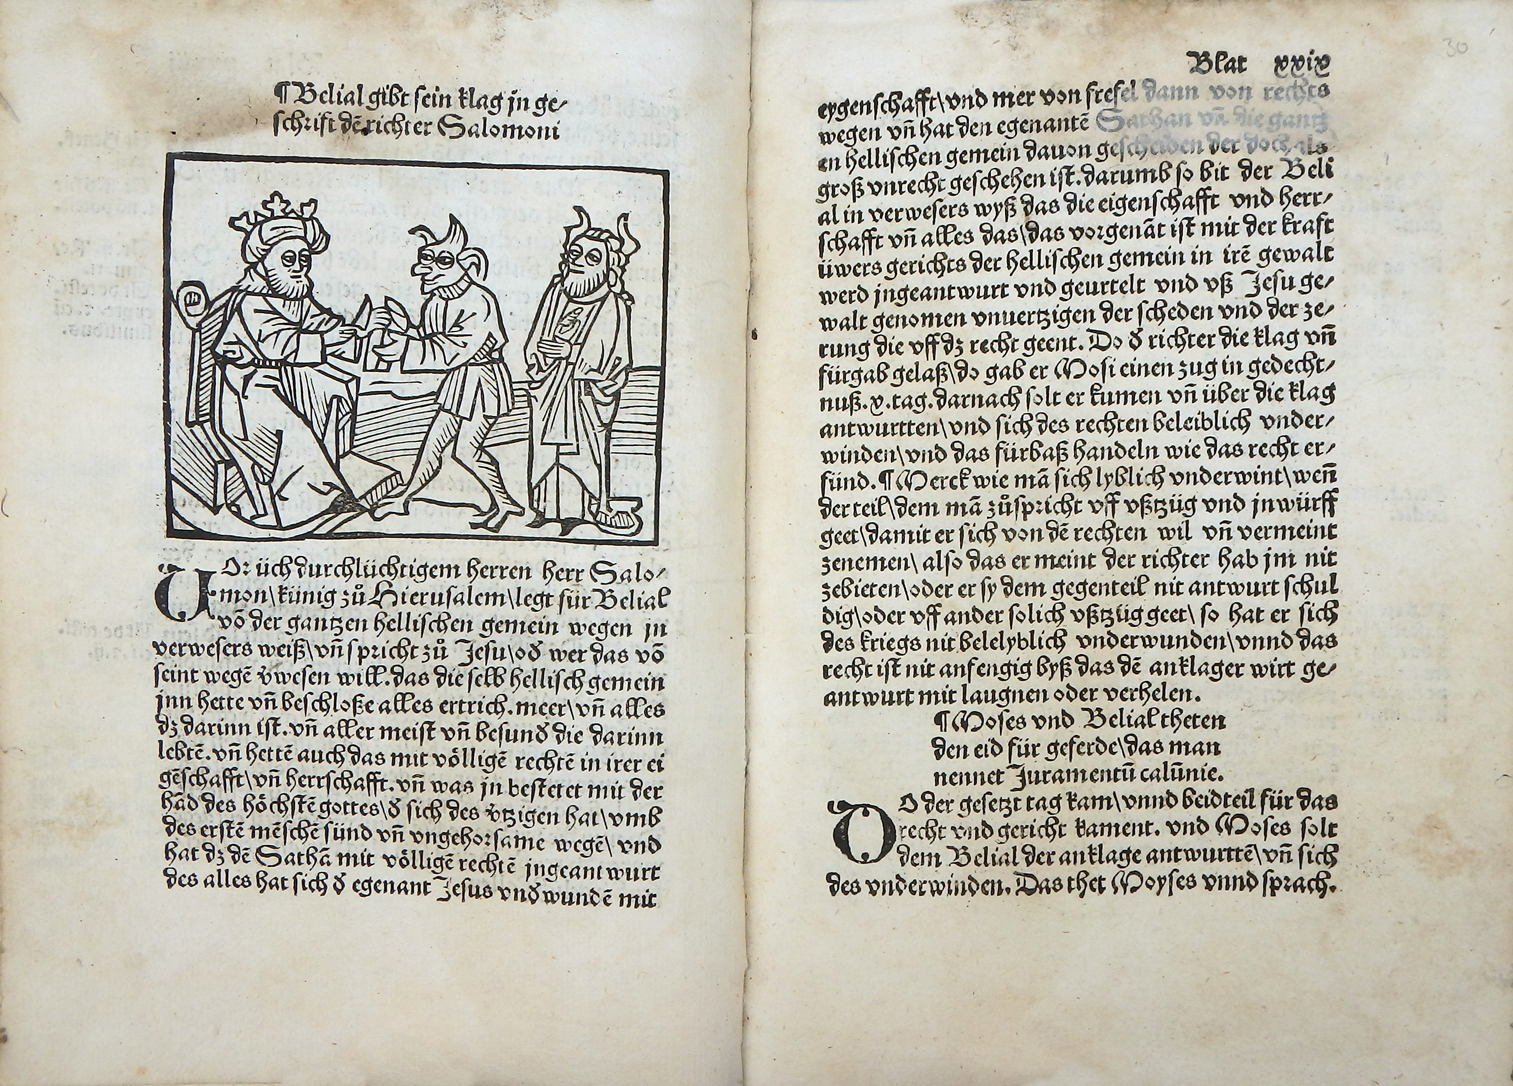 ¶ Belial gibt sein klag jn ge⸗
schrift dē richter Salomoni
VOr üch durchlüchtigem herren herr Salo⸗
mon\ künig zů Hierusalem\ legt für Belial
võ der gantzen hellischen gemein wegen jn
verwesers weiß\ vñ spricht zů Jesu\ oď wer das võ
seint wegē v̄wesen will. das die selb hellisch gemein
jnn hette vñ beschloße alles ertrich. meer\ vñ alles
dz darinn ist. vñ aller meist vñ besunď die darinn
lebtē. vñ hettē auch das mit völligē rechtē in irer ei
gēschafft\ vñ herrschafft. vñ was jn bestetet mit der
hãd des höchstē gottes\ ď sich des v̄tzigen hat\ vmb
des erstē mēschē sünd vñ vngehorsame wegē\ vnd
hat dz dē Sathã mit völligē rechtē jngeantwurt
des alles hat sich ď egenant Jesus vnďwundē mit
Blat xxix
30
eygenschafft\ vnd mer von frefel dann von rechts
wegen vñ hat den egenantē Sathan vñ die gantz
en hellischen gemein dauon gescheiden der doch als
groß vnrecht geschehen ist. darumb so bit der Beli
al in verwesers wyß das die eigenschafft vnd herr⸗
schafft vñ alles das\ das vorgenãt ist mit der kraft
üwers gerichts der hellischen gemein in irē gewalt
werd jngeantwurt vnd geurtelt vnd vß Jesu ge⸗
walt genomen vnuertzigen der scheden vnd der ze⸗
rung die vff dz recht geent. Do ď richter die klag vñ
fürgab gelaß\ do gab er Mosi einen zug in gedecht⸗
nuß. x. tag. darnach solt er kumen vñ über die klag
antwurtten\ vnd sich des rechten beleiblich vnder⸗
winden\ vnd das fürbaß handeln wie das recht er⸗
fünd. ¶ Merck wie mã sich lyblich vnderwint\ weñ
der teil\ dem mã zůspricht vff vßtzüg vnd jnwürff
geet\ damit er sich von dē rechten wil vñ vermeint
zenemen\ also das er meint der richter hab jm nit
zebieten\ oder er sy dem gegenteil nit antwurt schul
dig\ oder vff ander solich vßtzüg geet\ so hat er sich
des kriegs nit belelyblich vnderwunden\ vnnd das
recht ist nit anfengig byß das dē anklager wirt ge⸗
antwurt mit laugnen oder verhelen.
¶ Moses vnd Belial theten
den eid für geferde\ das man
nennet Juramentū calūnie.
DO der gesetzt tag kam\ vnnd beidteil für das
recht vnd gericht kament. vnd Moses solt
dem Belial der anklage antwurttē\ vñ sich
des vnderwinden. Das thet Moyses vnnd sprach.